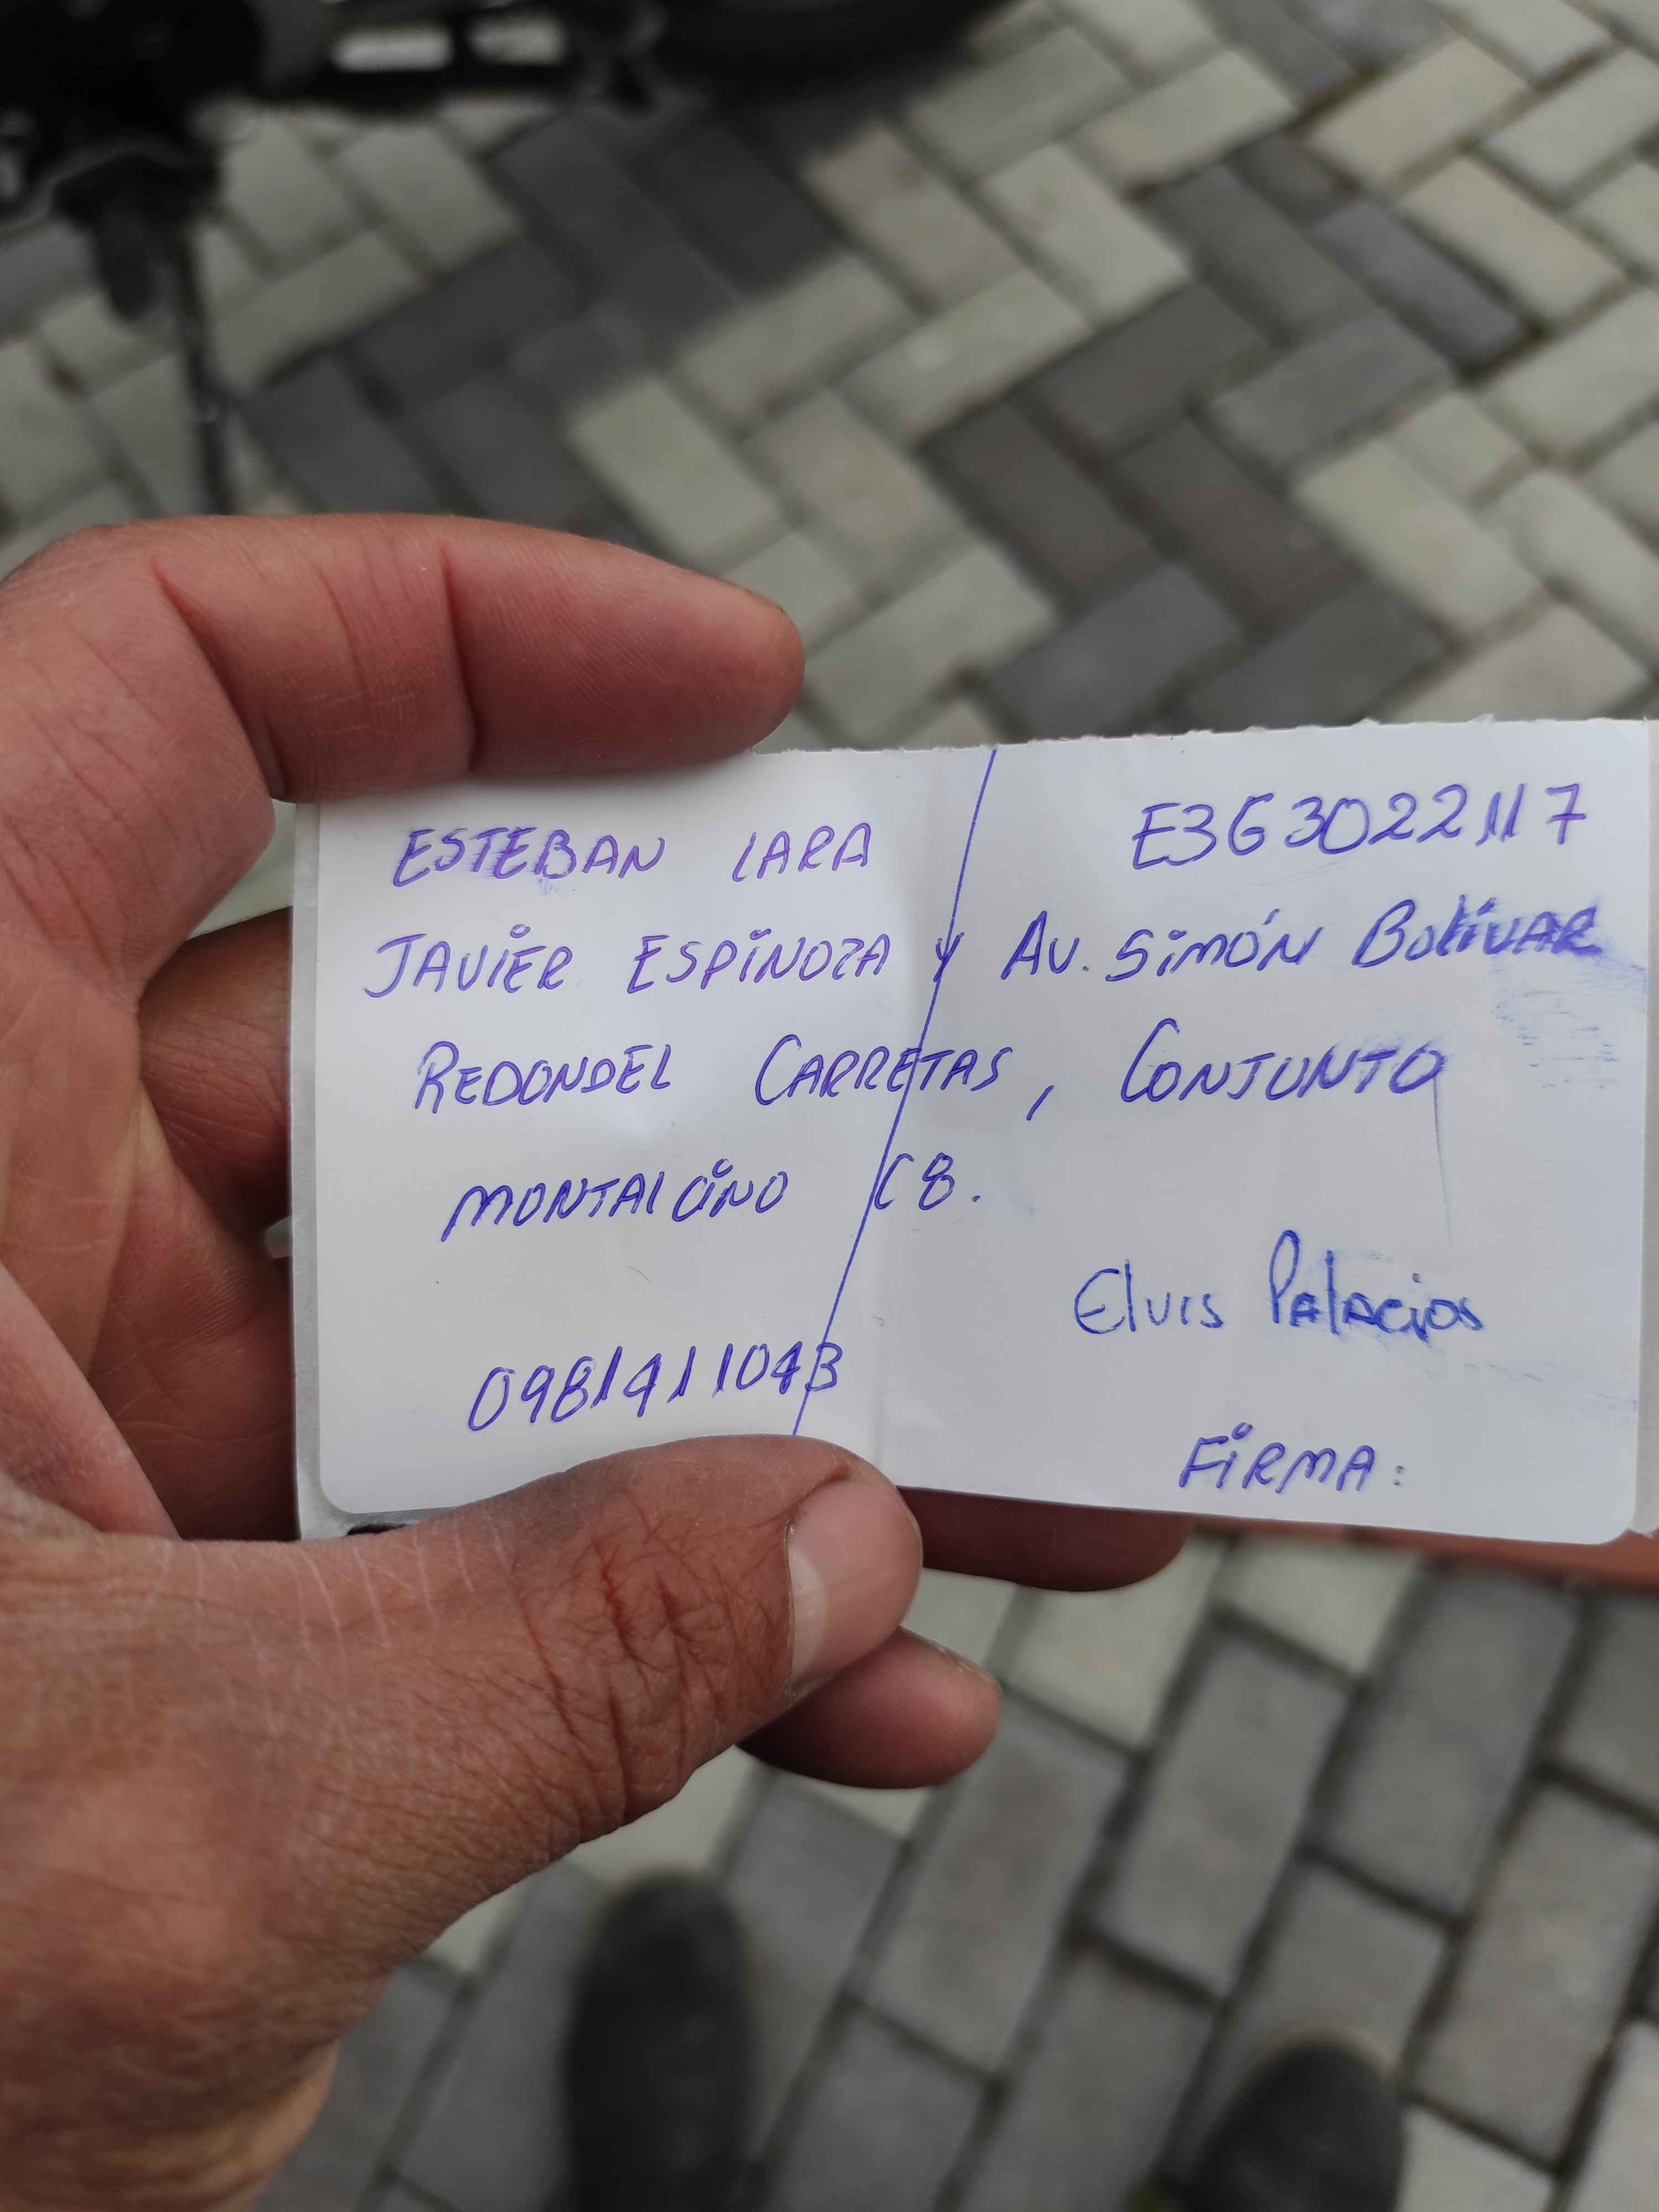 ESTEBAN LARA E3G3022117
JAViER ESPiNOZA y AV. SiMÓN BOLíVAR
REDONDEL CARRETAS, CONJUNTO
MONTALCiNO C8.
Elvis Palacios
0981411043
FiRMA: